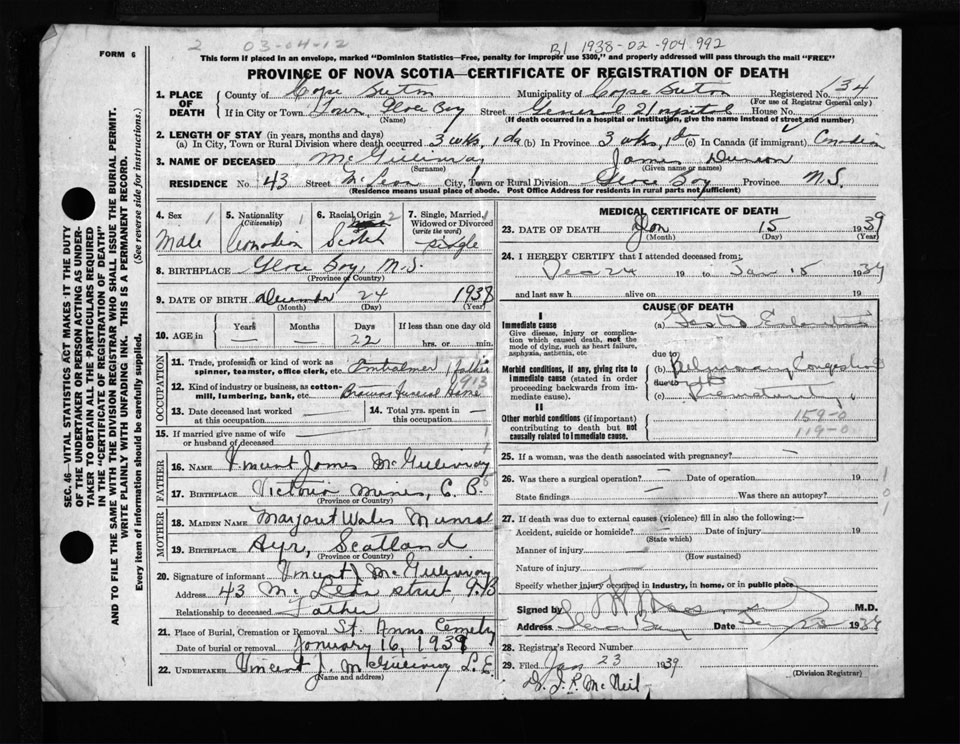 2 03-04-12
B1 1938-02-904992
FORM 6
This form if placed in an envelope, marked "Dominion Statistics—Free, penalty for improper use $300," and properly addressed will pass through the mail "FREE"
PROVINCE OF NOVA SCOTIA—CERTIFICATE OF REGISTRATION OF DEATH
SEC. 46—VITAL STATISTICS ACT MAKES IT THE DUTY
OF THE UNDERTAKER OR PERSON ACTING AS UNDER-
TAKER TO OBTAIN ALL THE PARTICULARS REQUIRED
IN THE "CERTIFICATE OF REGISTRATION OF DEATH"
AND TO FILE THE SAME WITH THE DIVISION REGISTRAR WHO SHALL ISSUE THE BURIAL PERMIT.
WRITE PLAINLY WITH UNFADING INK. THIS IS A PERMANENT RECORD.
Every item of information should be carefully supplied. (See reverse side for instructions.)
1. PLACE OF DEATH County of Cape Breton Municipality of Cape Breton Registered No. 134
(For use of Registrar General only)
If in City or Town Town, Glace Bay Street General Hospital House No.
(Name) (If death occurred in a hospital or institution, give the name instead of street and number)
2. LENGTH OF STAY (in years, months and days)
(a) In City, Town or Rural Division where death occurred 3 wks, 1 da (b) In Province 3 wks, 1 d (c) In Canada (if immigrant) Canadian
3. NAME OF DECEASED McGillivray James Duncan
(Surname) (Given name or names)
RESIDENCE No. 43 Street McLean City, Town or Rural Division Glace Bay Province N.S.
(Residence means usual place of abode. Post Office Address for residents in rural parts not sufficient)
4. Sex 1 5. Nationality 1 6. Racial Origin 2 7. Single, Married, Widowed or Divorced (write the word) 1
Male Canadian Scotch single
8. BIRTHPLACE Glace Bay, N.S.
(Province or Country)
9. DATE OF BIRTH December 24 1938
(Month) (Day) (Year)
10. AGE in Years — Months — Days 22 If less than one day old hrs. or min.
OCCUPATION
11. Trade, profession or kind of work as spinner, teamster, office clerk, etc. Embalmer father
12. Kind of industry or business, as cotton-mill, lumbering, bank, etc. Funeral Home
913
13. Date deceased last worked at this occupation — 14. Total yrs. spent in this occupation —
15. If married give name of wife or husband of deceased —
FATHER
16. NAME Vincent James McGillivray
17. BIRTHPLACE Victoria Mines, C.B.
(Province or Country)
MOTHER
18. MAIDEN NAME Margaret Wales Munro
19. BIRTHPLACE Ayr, Scotland
(Province or Country)
20. Signature of informant Vincent J. McGillivray
Address 43 McLean street G.B
Relationship to deceased Father
21. Place of Burial, Cremation or Removal St. Anns Cemetry
Date of burial or removal January 16, 1939
22. UNDERTAKER Vincent J. McGillivray L.E.
(Name and address)
MEDICAL CERTIFICATE OF DEATH
23. DATE OF DEATH Jan 15 1939
(Month) (Day) (Year)
24. I HEREBY CERTIFY that I attended deceased from:
Dec 24 19 to Jan 15 1939
and last saw h alive on 19
CAUSE OF DEATH
I
Immediate cause
Give disease, injury or complication which caused death, not the mode of dying, such as heart failure, asphyxia, asthenia, etc
(a)
due to
Morbid conditions, if any, giving rise to immediate cause (stated in order proceeding backwards from immediate cause).
(b) Pulmonary Congestion
due to
(c) Prematurity
II
Other morbid conditions (if important) contributing to death but not causally related to immediate cause.
159-0
119-0
25. If a woman, was the death associated with pregnancy? —
26. Was there a surgical operation? — Date of operation 19
State findings — Was there an autopsy?
27. If death was due to external causes (violence) fill in also the following:—
Accident, suicide or homicide? — Date of injury 19
(State which)
Manner of injury —
(How sustained)
Nature of injury —
Specify whether injury occurred in industry, in home, or in public place
Signed by M.D.
Address Glace Bay Date 1939
28. Registrar's Record Number
29. Filed Jan 23 1939
J.R. McNeil
(Division Registrar)